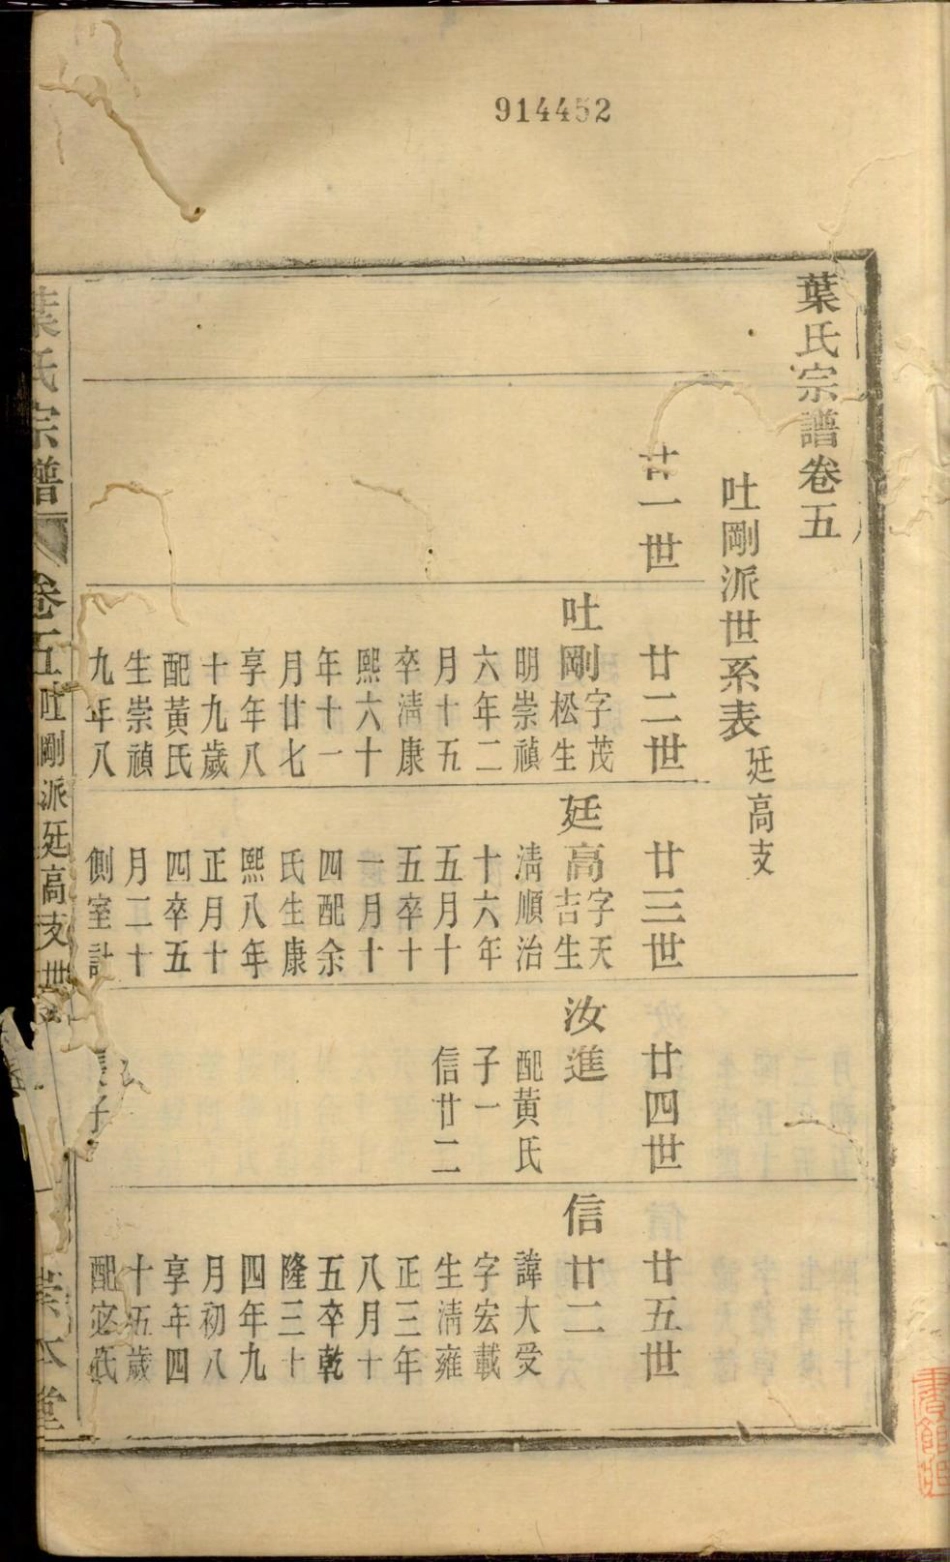 914452
葉氏宗譜卷五
吐剛派世系表廷高支
廿一世
廿二世
吐剛字茂
松生
明崇禎
六年二
月十五
卒清康
熙六十
年十一
月廿七
享年八
十九歲
配黃氏
生崇禎
九年八
廿三世
廷高字天
吉生
清順治
十六年
五月十
五卒十
一月十
四配余
氏生康
熙八年
正月十
四卒五
月二十
側室計
廿四世
汝進
配黃氏
子一
信廿二
子
廿五世
信廿二
諱大受
字宏載
生清雍
正三年
八月十
五卒乾
隆三十
四年九
月初八
享年四
十五歲
配宓氏
葉氏宗譜
卷五
吐剛派廷高支世
本堂